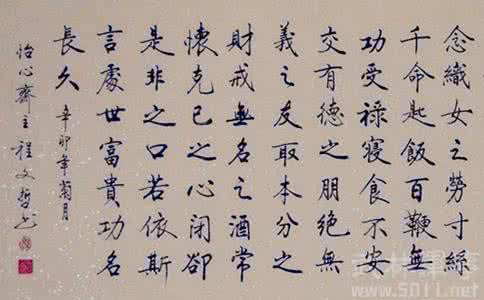 念織女之勞寸絲
千命匙飯百鞭無
功受祿寢食不安
交有德之朋絕無
義之友取本分之
財戒無名之酒常
懷克己之心闭卻
是非之口若依斯
言處世富貴功名
長久 辛卯年菊月
怡心齋主程文哲书
www.5011.net